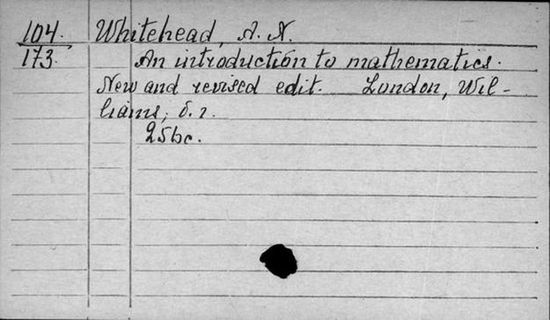 104. Whitehead, A. N.
173. An introduction to mathematics.
New and revised edit. London, Wil-
liams, б. г.
256 с.